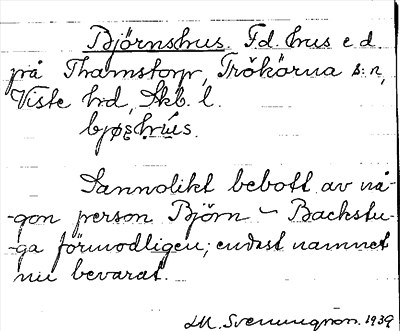 Björnshus. Fd. hus e d.
på Thamstorp, Trökörna s:n,
Viste hrd, Skb. l.
Sannolikt bebott av nå-
-gon person Björn - Backstu-
-ga förmodligen; endast namnet
nu bevarat.
Svenungson. 1939